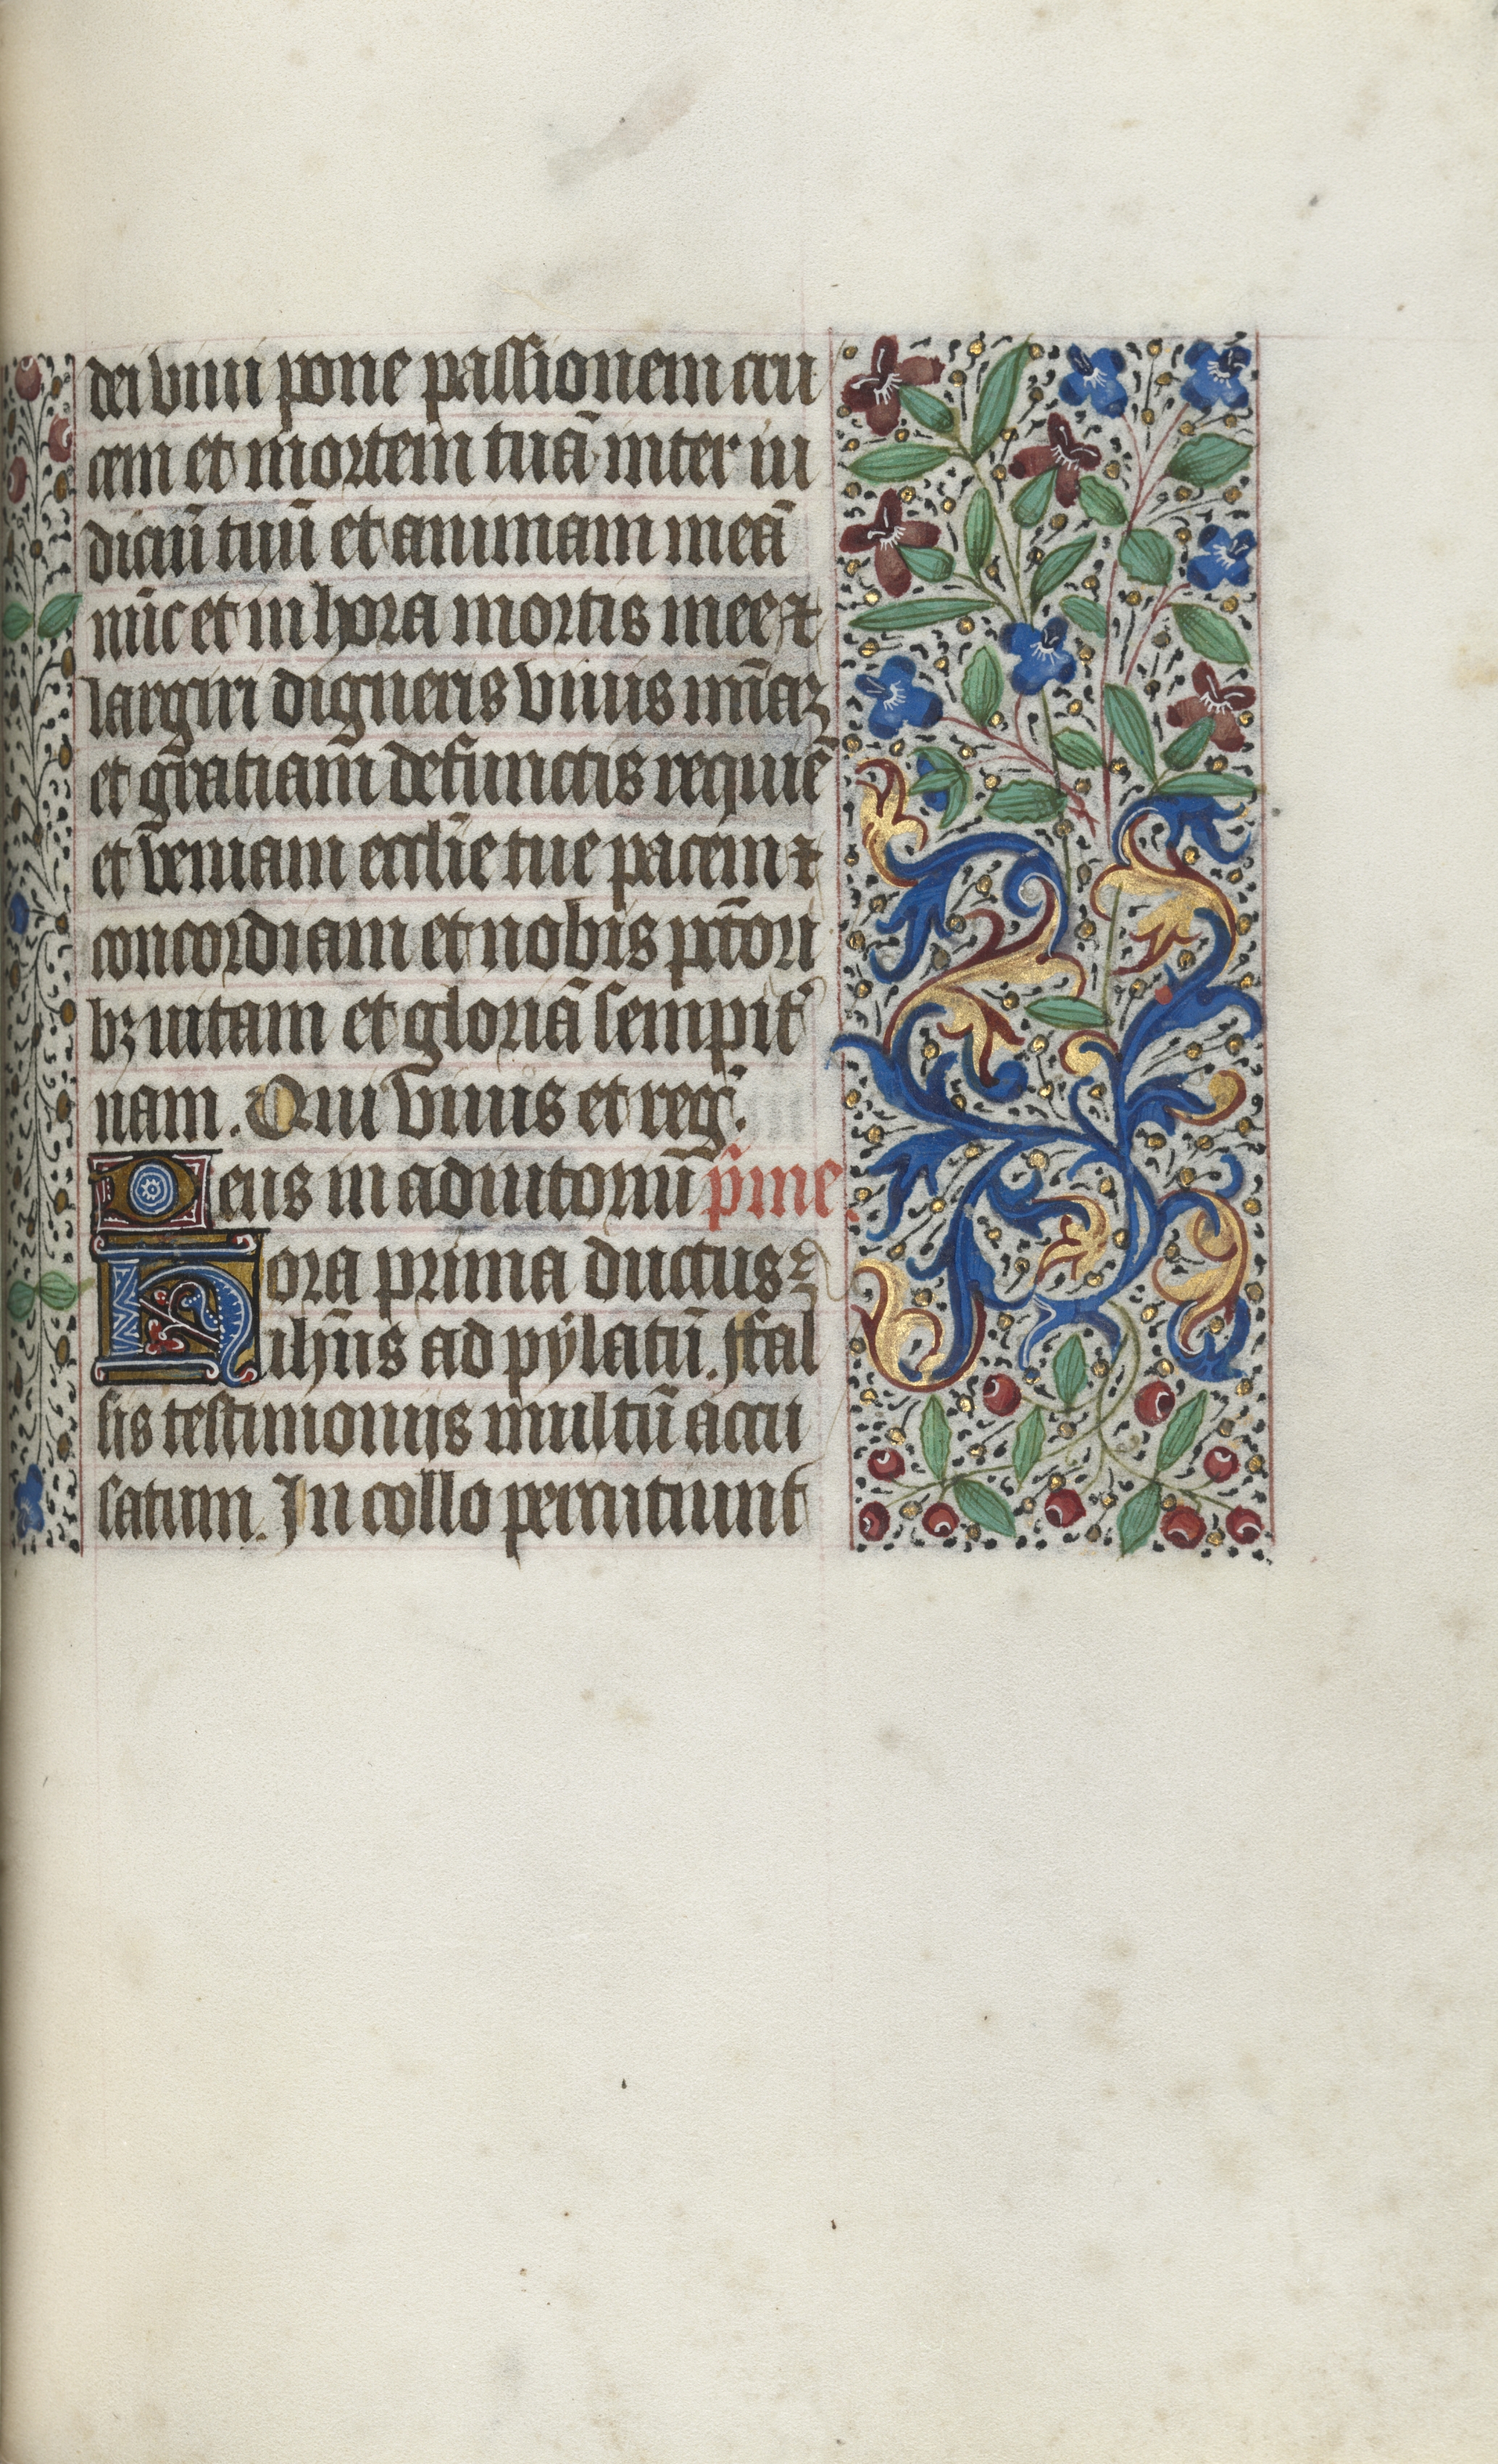 dei viui pone passionem cru
cem et mortem tuã inter iu
diciũ tuũ et animam meã
nũc et in hora mortis mee ⁊
largiri digneris viuis mĩaꝫ
et gr̃atiam defunctis requiẽ
et veniam eccl̃ie tue pacem ⁊
concordiam et nobis pc̃tori
bꝫ uitam et gloriã sempit͛
nam. Qui viuis et reg̃.
Deus in adiutoriũ p̃me.
Hora prima ductus ē
ihũs ad pẏlatũ. ffal
sis testimoniis multũ accu
satum. In collo percutiunt